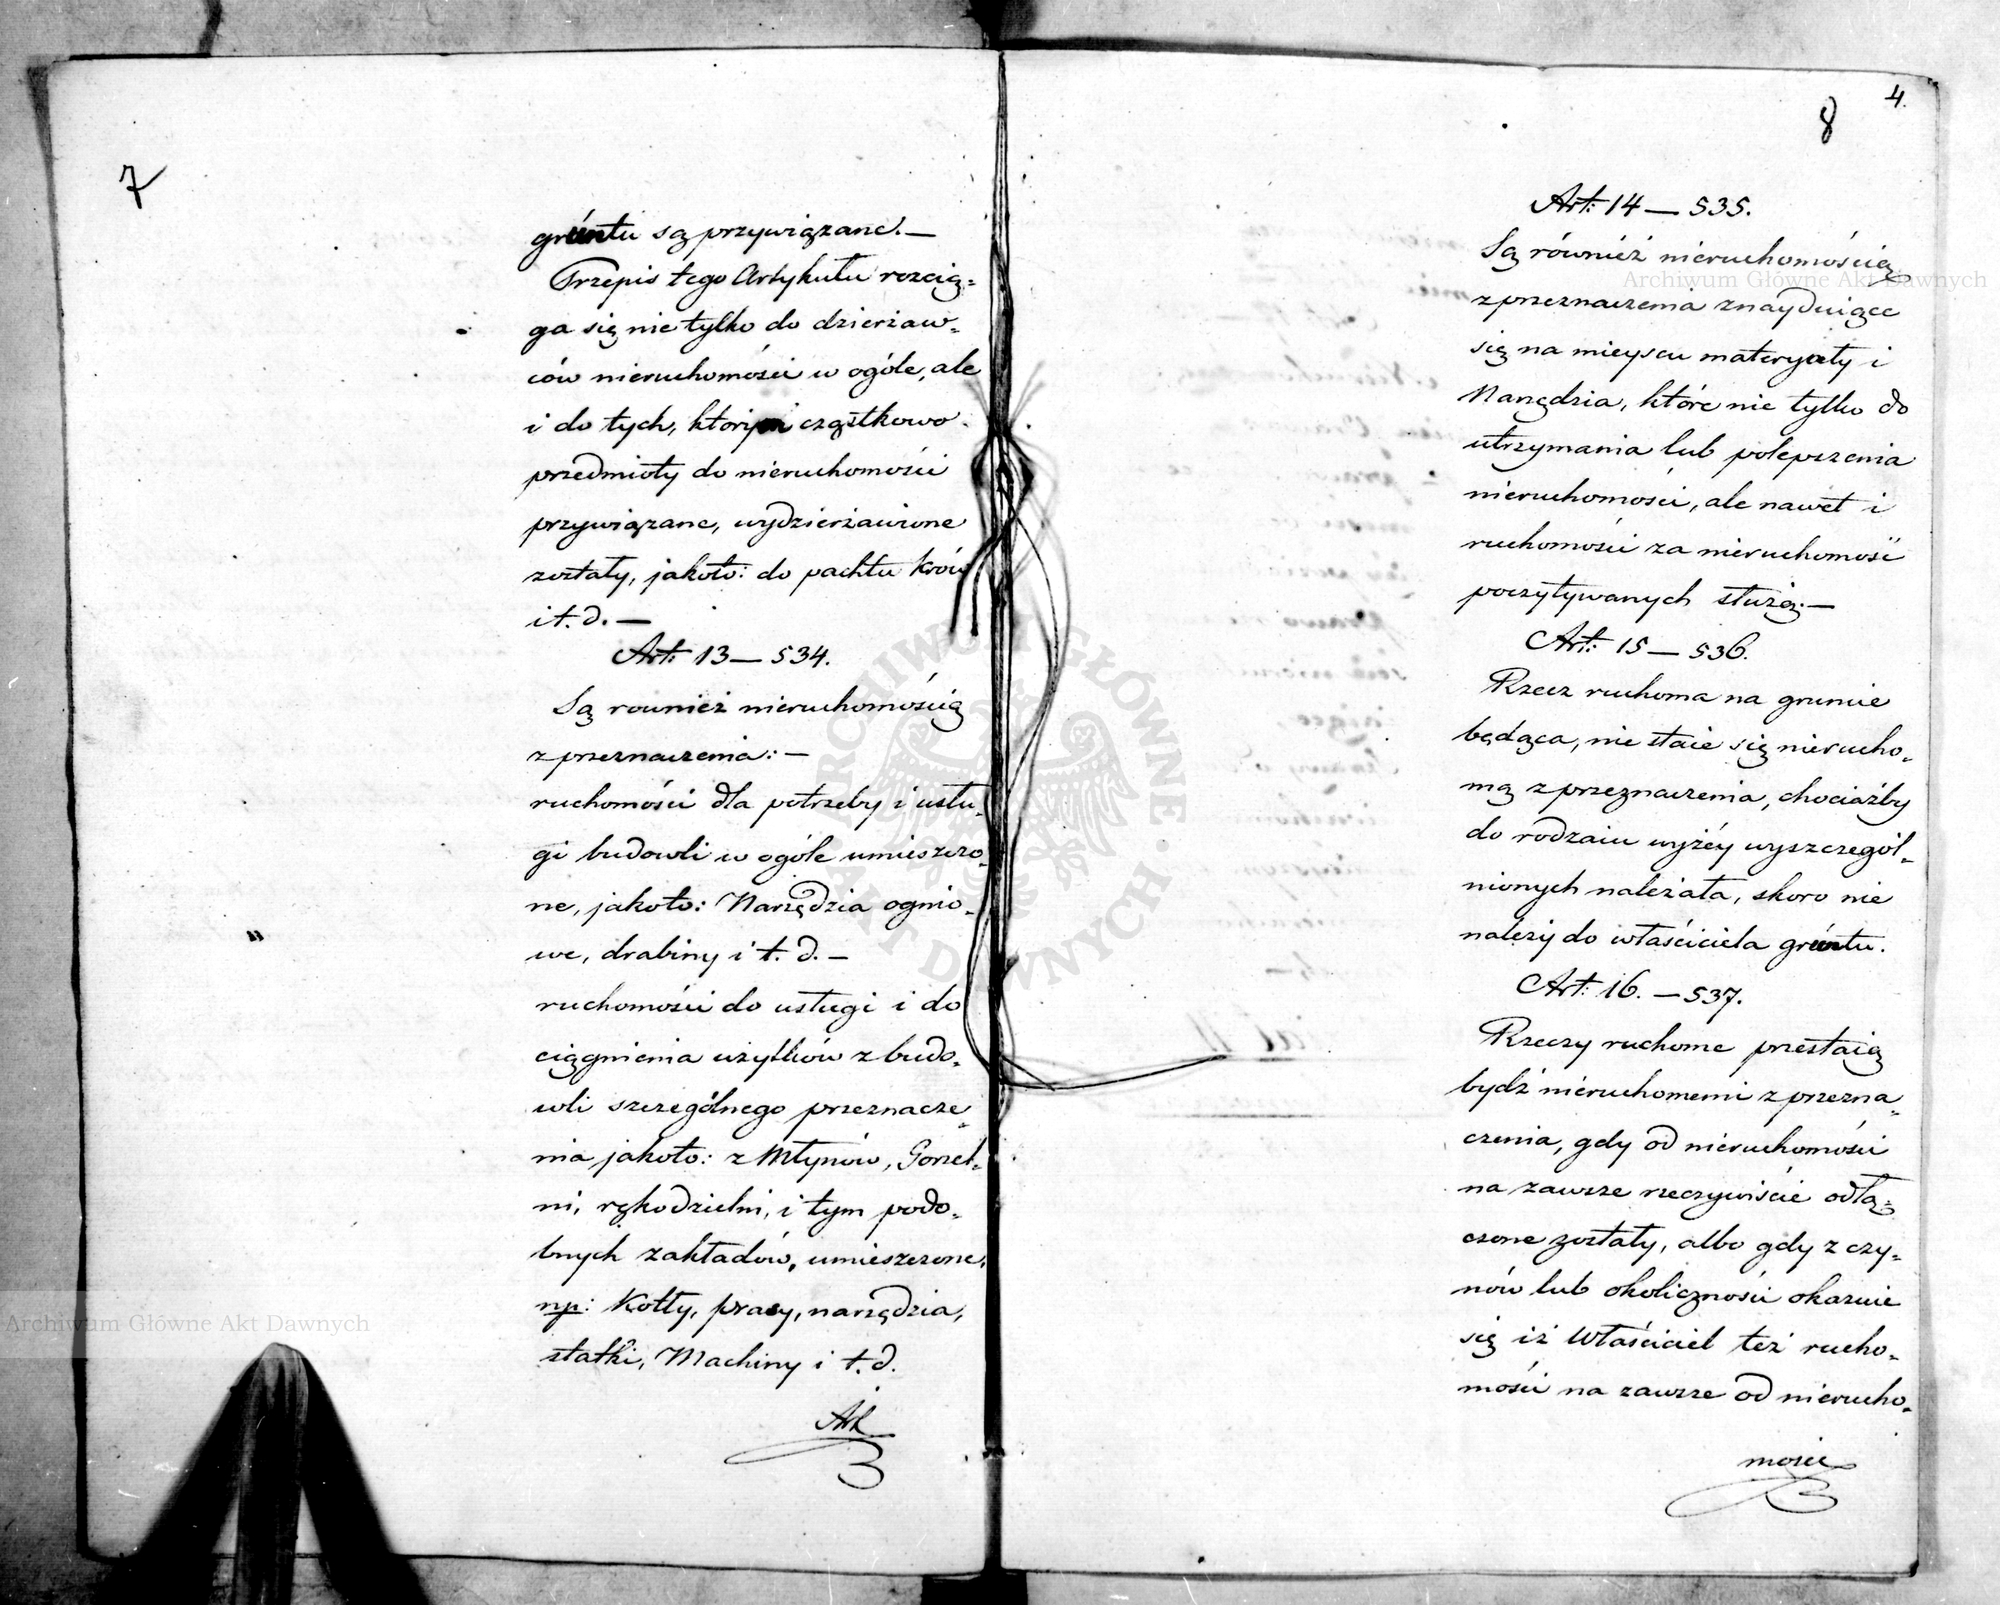 7
gruntu są przywiązane. —
Przepis tego Artykułu rozcią=
ga się nie tylko do dzierżaw=
ców nieruchomości w ogóle, ale
i do tych, którym cząstkowo
przedmioty do nieruchomości
przywiązane, wydzierżawione
zostały, jakoto: do pachtu krów
i t. d. —
Art: 13 — 534.
Są rownież nieruchomością
z przeznaczenia: —
ruchomości dla potrzeby i usłu=
gi budowli w ogóle umieszczo=
ne, jakoto: Narzędzia ognio=
we, drabiny i t. d. —
ruchomości do usługi i do
ciągnienia użytków z budo=
wli szczególnego przeznacze=
nia jakoto: z Młynów, Gorzel=
ni, rękodzielni, i tym podo=
bnych zakładów, umieszczone,
np: Kotły, prasy, narzędzia,
statki, Machiny i t. d.
Art
4.
8
Art: 14 — 535.
Są również nieruchomością
z przeznaczenia znayduiące
się na mieyscu materyały i
Narzędzia, które nie tylko do
utrzymania lub polepszenia
nieruchomości, ale nawet i
ruchomości za nieruchomość
poczytywanych służą. —
Art: 15 — 536.
Rzecz ruchoma na gruncie
będąca, nie staie się nierucho=
mą z przeznaczenia, chociażby
do rodzaiu wyżéy wyszczegól=
nionych należała, skoro nie
należy do właściciela gruntu.
Art: 16. — 537.
Rzeczy ruchome przestaią
bydź nieruchomemi z przezna=
czenia, gdy od nieruchomości
na zawsze rzeczywiście odłą=
czone zostały, albo gdy z czy=
nów lub okoliczności okazuie
się iż Właściciel też rucho=
mości na zawsze od nierucho=
mości
Archiwum Główne Akt Dawnych
Archiwum Główne Akt Dawnych
ARCHIWUM GŁÓWNE AKT DAWNYCH